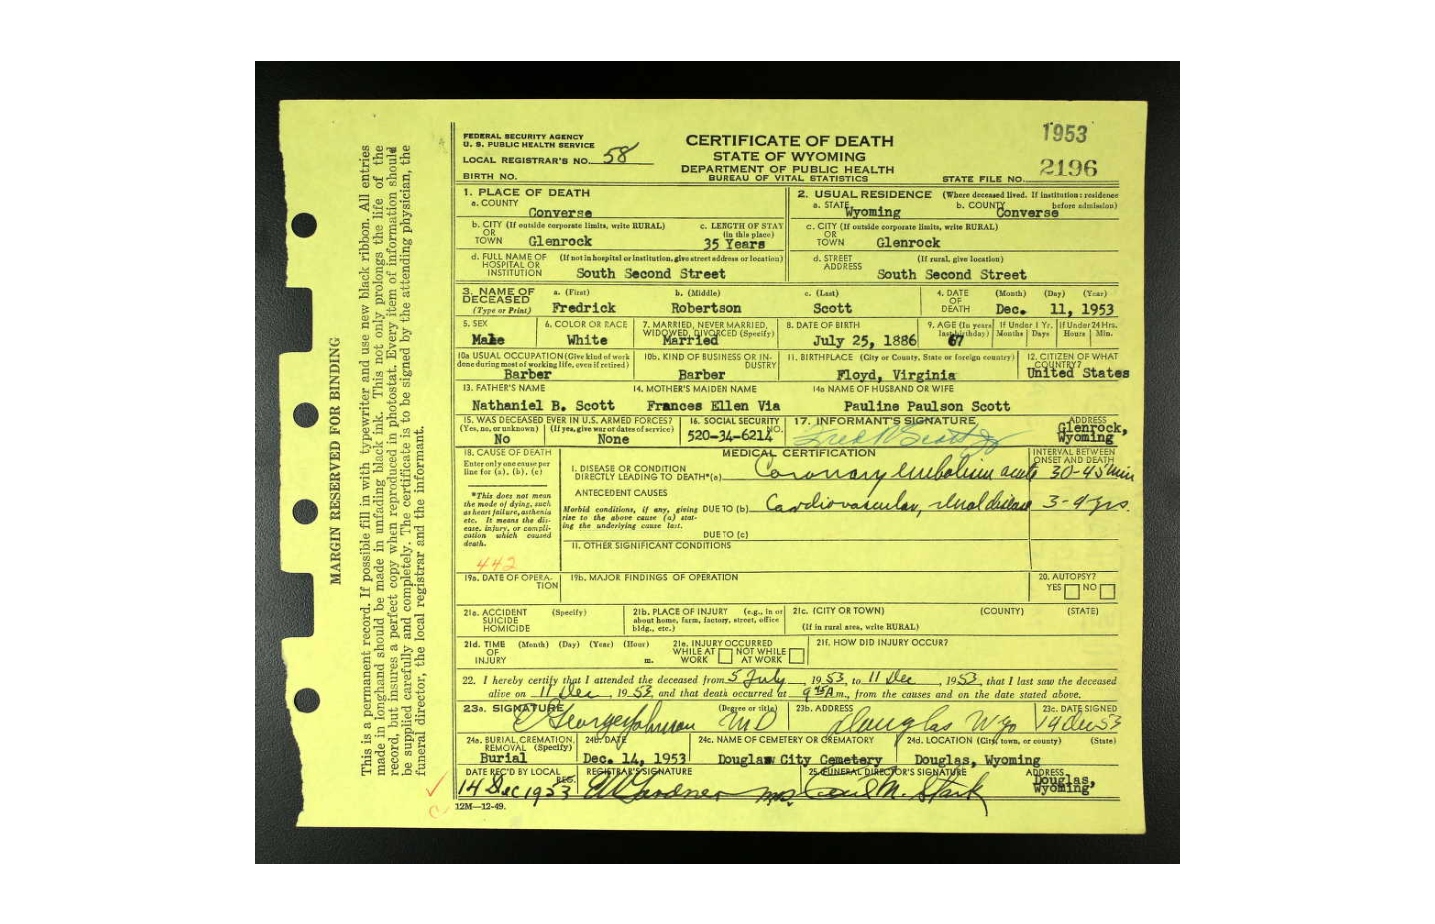 MARGIN RESERVED FOR BINDING
This is a permanent record. If possible fill in with typewriter and use new black ribbon. All entries
made in longhand should be made in unfading black ink. This not only prolongs the life of the
record, but insures a perfect copy when reproduced in photostat. Every item of information should
be supplied carefully and completely. The certificate is to be signed by the attending physician, the
funeral director, the local registrar and the informant.
FEDERAL SECURITY AGENCY
U. S. PUBLIC HEALTH SERVICE
LOCAL REGISTRAR'S NO. 58
BIRTH NO.
CERTIFICATE OF DEATH
STATE OF WYOMING
DEPARTMENT OF PUBLIC HEALTH
BUREAU OF VITAL STATISTICS
1953
STATE FILE NO. 2196
1. PLACE OF DEATH
a. COUNTY Converse
2. USUAL RESIDENCE (Where deceased lived. If institution: residence before admission)
a. STATE Wyoming b. COUNTY Converse
b. CITY (If outside corporate limits, write RURAL) OR TOWN Glenrock
c. LENGTH OF STAY (in this place) 35 Years
c. CITY (If outside corporate limits, write RURAL) OR TOWN Glenrock
d. FULL NAME OF HOSPITAL OR INSTITUTION (If not in hospital or institution, give street address or location) South Second Street
d. STREET ADDRESS (If rural, give location) South Second Street
3. NAME OF DECEASED (Type or Print) a. (First) Fredrick b. (Middle) Robertson c. (Last) Scott
4. DATE OF DEATH (Month) (Day) (Year) Dec. 11, 1953
5. SEX Male
6. COLOR OR RACE White
7. MARRIED, NEVER MARRIED, WIDOWED, DIVORCED (Specify) Married
8. DATE OF BIRTH July 25, 1886
9. AGE (In years last birthday) 67 If Under 1 Yr. Months Days If Under 24 Hrs. Hours Min.
10a USUAL OCCUPATION (Give kind of work done during most of working life, even if retired) Barber
10b. KIND OF BUSINESS OR INDUSTRY Barber
11. BIRTHPLACE (City or County, State or foreign country) Floyd, Virginia
12. CITIZEN OF WHAT COUNTRY? United States
13. FATHER'S NAME Nathaniel B. Scott
14. MOTHER'S MAIDEN NAME Frances Ellen Via
14a NAME OF HUSBAND OR WIFE Pauline Paulson Scott
15. WAS DECEASED EVER IN U.S. ARMED FORCES? (Yes, no, or unknown) No (If yes, give war or dates of service) None
16. SOCIAL SECURITY NO. 520-34-6214
17. INFORMANT'S SIGNATURE Fred R Scott Jr
ADDRESS Glenrock, Wyoming
18. CAUSE OF DEATH
Enter only one cause per line for (a), (b), (c)
*This does not mean the mode of dying, such as heart failure, asthenia etc. It means the disease, injury, or complication which caused death.
442
MEDICAL CERTIFICATION
INTERVAL BETWEEN ONSET AND DEATH
I. DISEASE OR CONDITION DIRECTLY LEADING TO DEATH*(a) Coronary embolism acute 30-45 min
ANTECEDENT CAUSES
Morbid conditions, if any, giving rise to the above cause (a) stating the underlying cause last.
DUE TO (b) Cardiovascular, renal disease 3-4 yrs.
DUE TO (c)
II. OTHER SIGNIFICANT CONDITIONS
19a. DATE OF OPERATION
19b. MAJOR FINDINGS OF OPERATION
20. AUTOPSY? YES NO
21a. ACCIDENT SUICIDE HOMICIDE (Specify)
21b. PLACE OF INJURY (e.g., in or about home, farm, factory, street, office bldg., etc.)
21c. (CITY OR TOWN) (COUNTY) (STATE)
(If in rural area, write RURAL)
21d. TIME OF INJURY (Month) (Day) (Year) (Hour) m.
21e. INJURY OCCURRED WHILE AT WORK NOT WHILE AT WORK
21f. HOW DID INJURY OCCUR?
22. I hereby certify that I attended the deceased from 5 July, 1953, to 11 Dec, 1953, that I last saw the deceased
alive on 11 Dec, 1953, and that death occurred at 9 15 A m., from the causes and on the date stated above.
23a. SIGNATURE George Johnson (Degree or title) MD
23b. ADDRESS Douglas Wyo
23c. DATE SIGNED 14 Dec 53
24a. BURIAL, CREMATION, REMOVAL (Specify) Burial
24b. DATE Dec. 14, 1953
24c. NAME OF CEMETERY OR CREMATORY Douglas City Cemetery
24d. LOCATION (City, town, or county) (State) Douglas, Wyoming
DATE REC'D BY LOCAL REG. 14 Dec 1953
REGISTRAR'S SIGNATURE Gardner
25. FUNERAL DIRECTOR'S SIGNATURE Mrs. Cecil M. Stark
ADDRESS Douglas, Wyoming
12M—12-49.